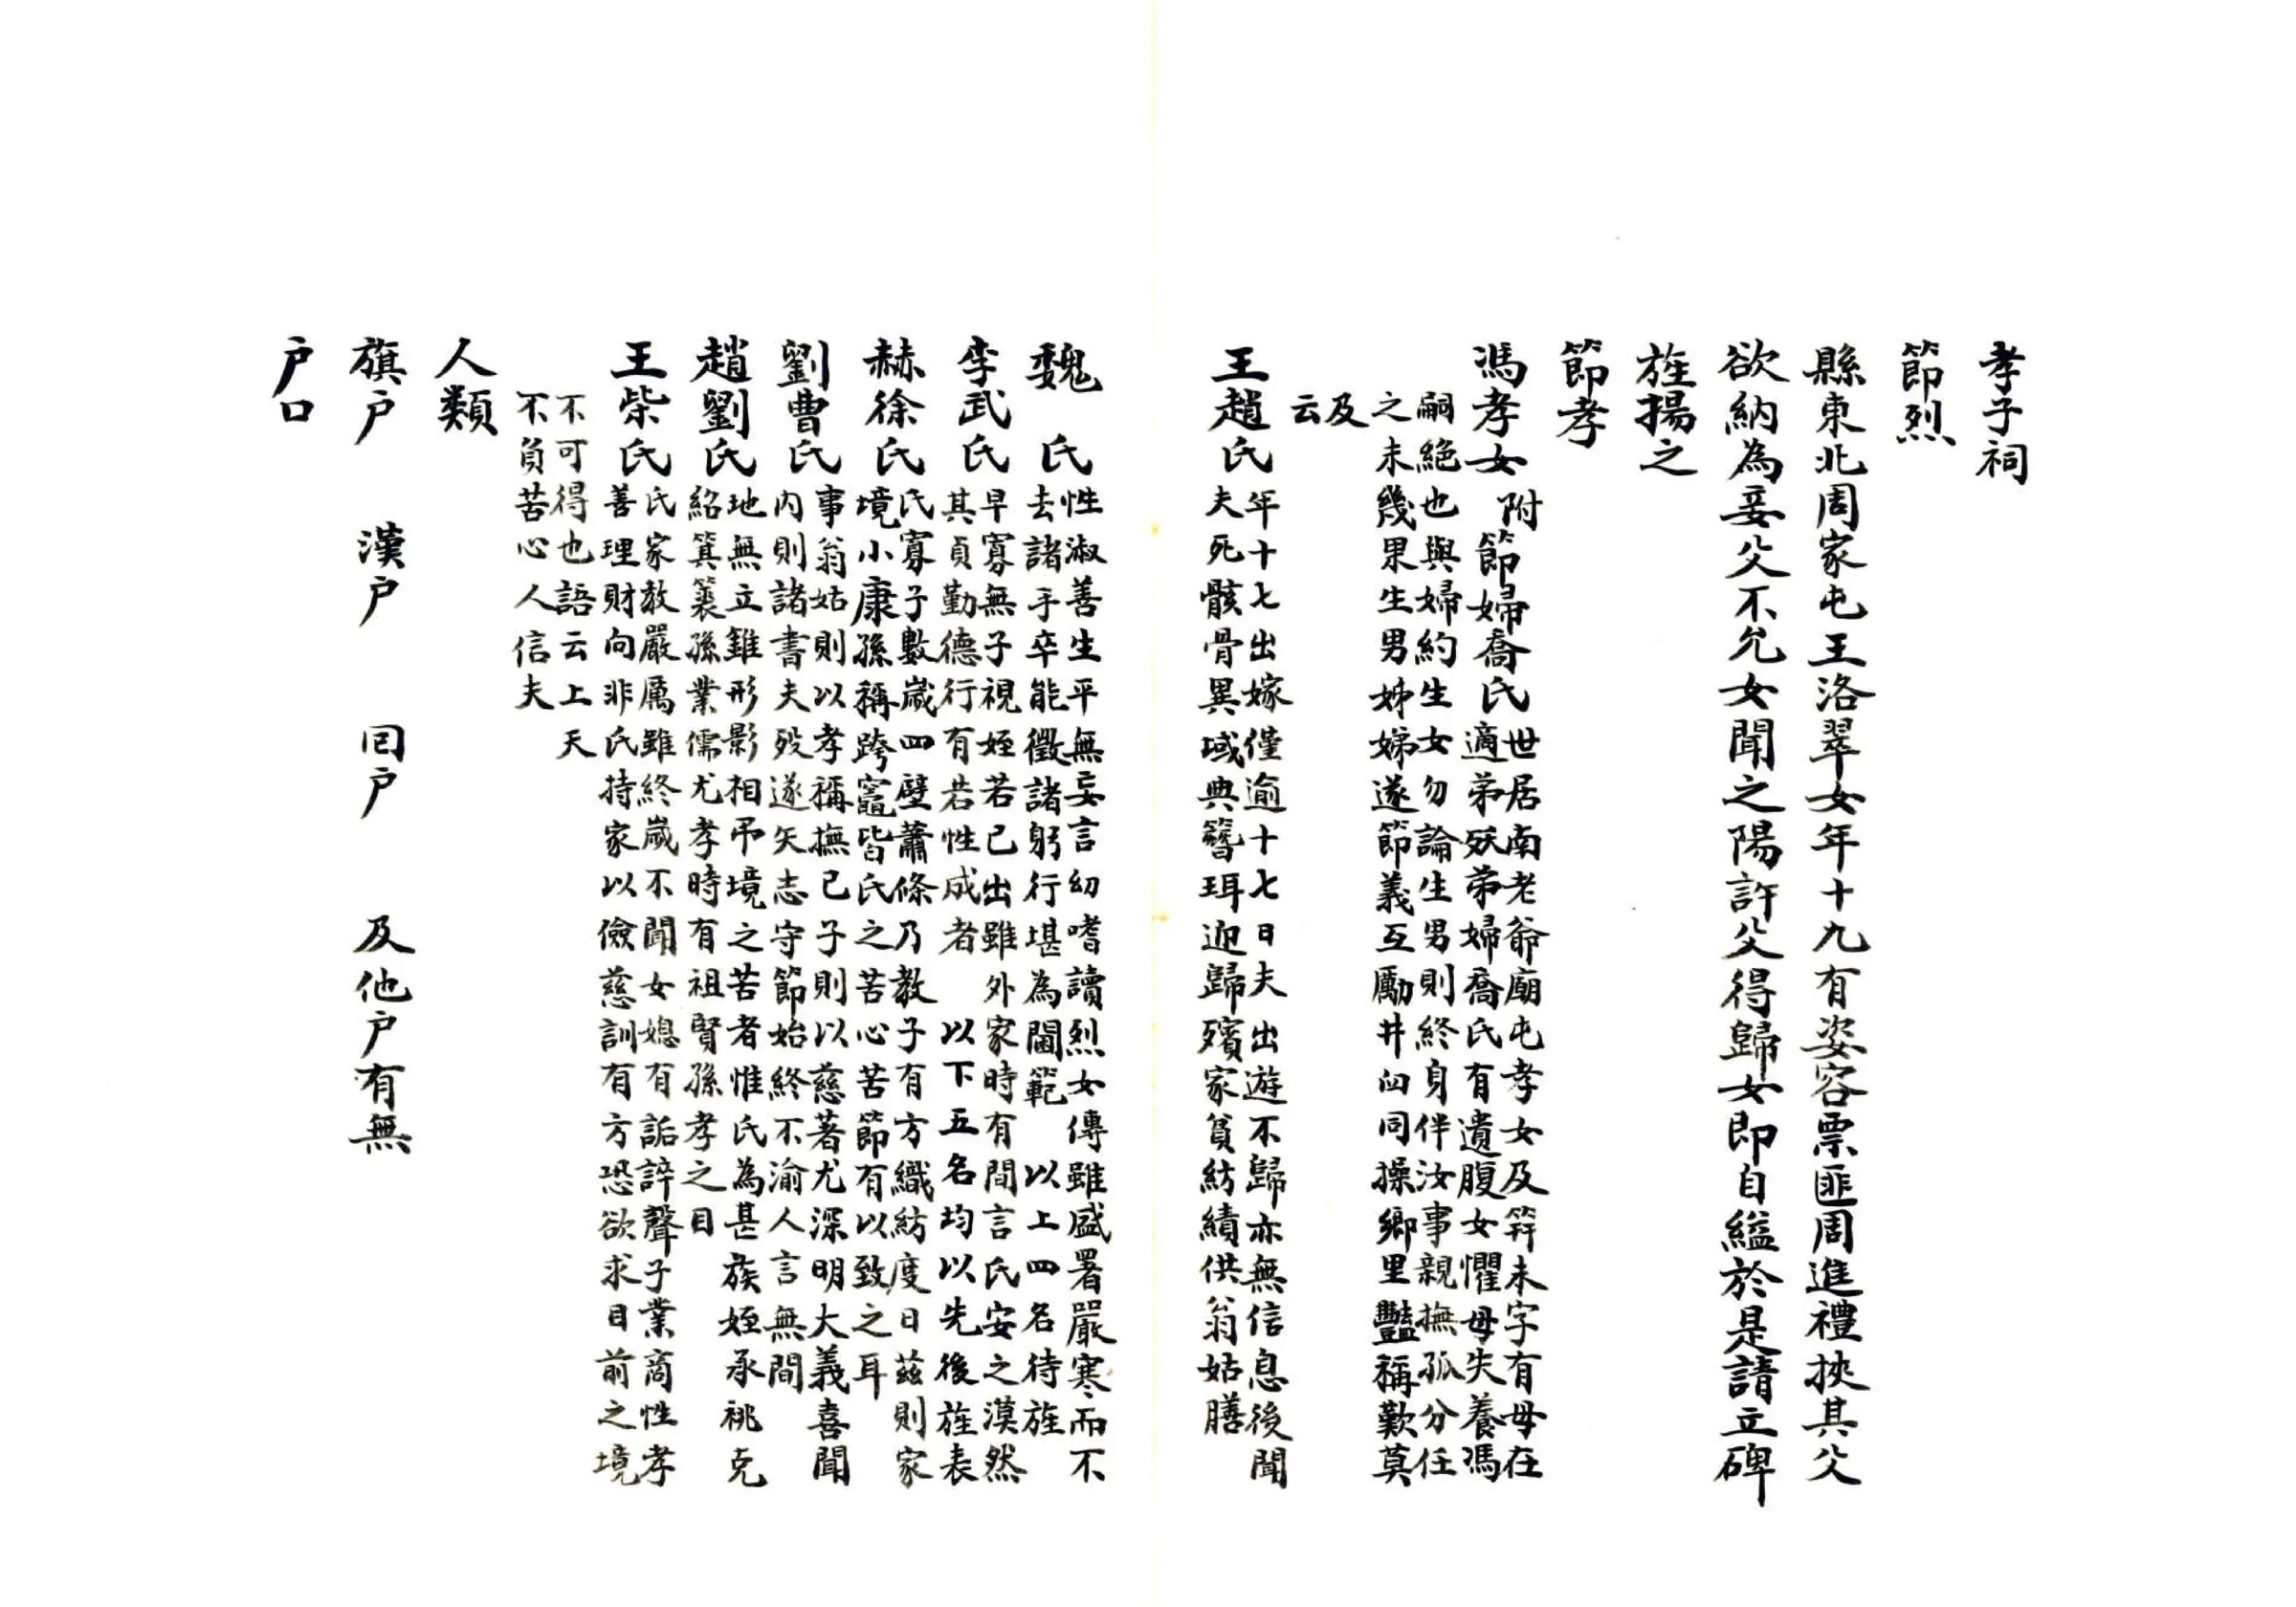 孝子祠
節烈
縣東北周家屯王洛翠女年十九有姿容票匪周進禮挾其父
欲納為妾父不允女聞之陽許父得歸女即自縊於是請立碑
旌揚之
節孝
馮孝女附節婦喬氏世居南老爺廟屯孝女及笄未字有母在
適弟歿弟婦喬氏有遺腹女懼母失養馮
嗣絕也與婦約生女勿論生男則終身伴汝事親撫孤分任
之未幾果生男姊娣遂節義互勵井臼同操鄉里豔稱歎莫
及
云
王趙氏年十七出嫁僅逾十七日夫出遊不歸亦無信息後聞
夫死骸骨異域典簪珥迎歸殯家貧紡績供翁姑膳
魏氏性淑善生平無妄言幼嗜讀烈女傳雖盛署嚴寒而不
去諸手卒能徵諸躬行堪為閫範 以上四名待旌
李武氏早寡無子視姪若己出雖外家時有間言氏安之漠然
其貞勤德行有若性成者 以下五名均以先後旌表
赫徐氏氏寡子數歲四壁蕭條乃教子有方織紡度日茲則家
境小康孫稱跨竈皆氏之苦心苦節有以致之耳
劉曹氏事翁姑則以孝稱撫己子則以慈著尤深明大義喜聞
內則諸書夫歿遂矢志守節始終不渝人言無間
趙劉氏地無立錐形影相弔境之苦者惟氏為甚族姪承祧克
紹箕裘孫業儒尤孝時有祖賢孫孝之目
王柴氏氏家教嚴厲雖終歲不聞女媳有詬誶聲子業商性孝
善理財向非氏持家以儉慈訓有方恐欲求目前之境
不可得也語云上天
不負苦心人信夫
人類
旗户 漢户 回户 及他户有無
户口